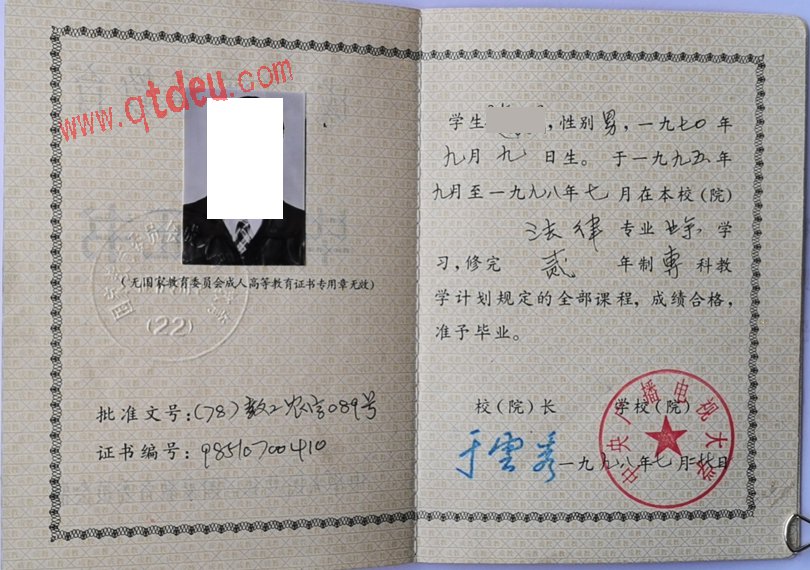 www.qtdeu.com
(无国家教育委员会成人高等教育证书专用章无效)
(22)
批准文号:(78)教工农字089号
证书编号:98510700410
学生 ,性别男,一九七〇年
九月九日生。于一九九五年
九月至一九九八年七月在本校(院)
法律专业 学
习,修完贰年制专科教
学计划规定的全部课程,成绩合格,
准予毕业。
校(院)长 学校(院)
于云秀 一九九八年七月 日
中央广播电视大学